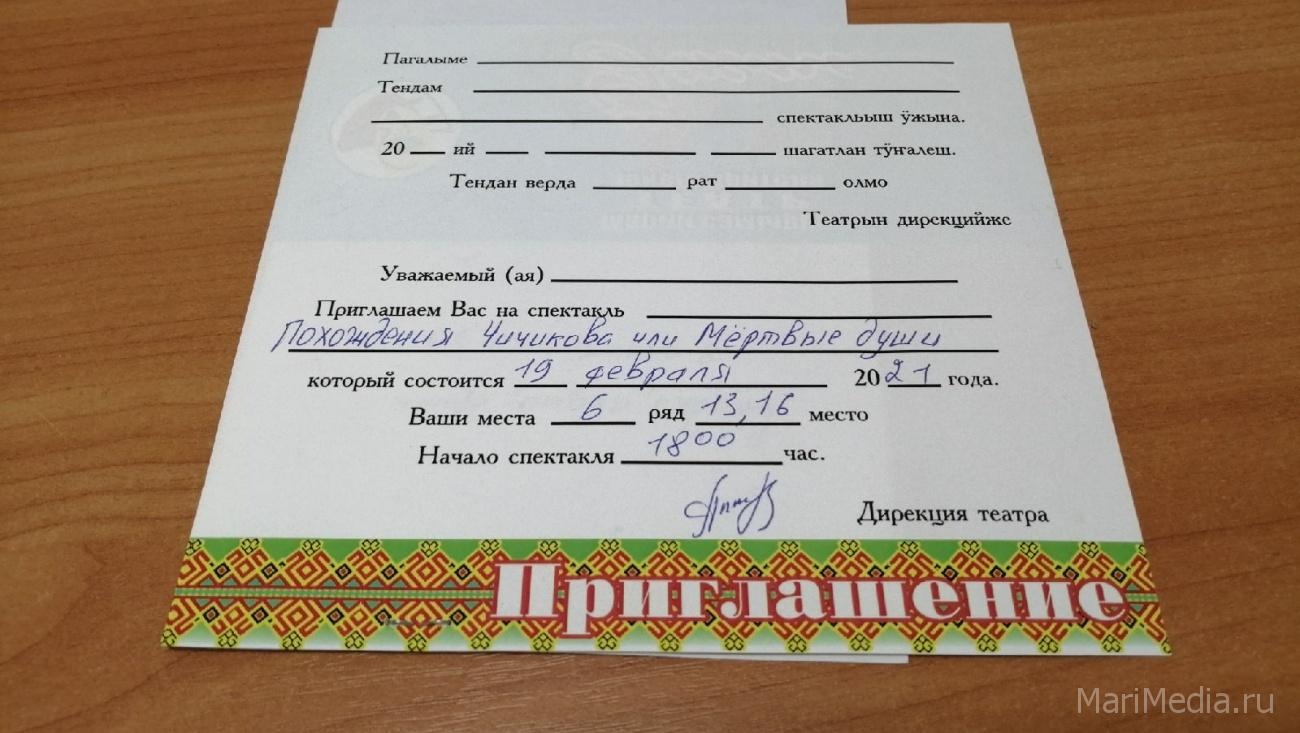 Пагалыме
Тендам
спектакльыш ӱжына.
20 ий шагатлан тӱҥалеш.
Тендан верда рат олмо
Театрын дирекцийже
Уважаемый (ая)
Приглашаем Вас на спектакль
Похождения Чичикова или Мёртвые души
который состоится 19 февраля 2021 года.
Ваши места 6 ряд 13,16 место
Начало спектакля 1800 час.
Дирекция театра
Приглашение
MariMedia.ru